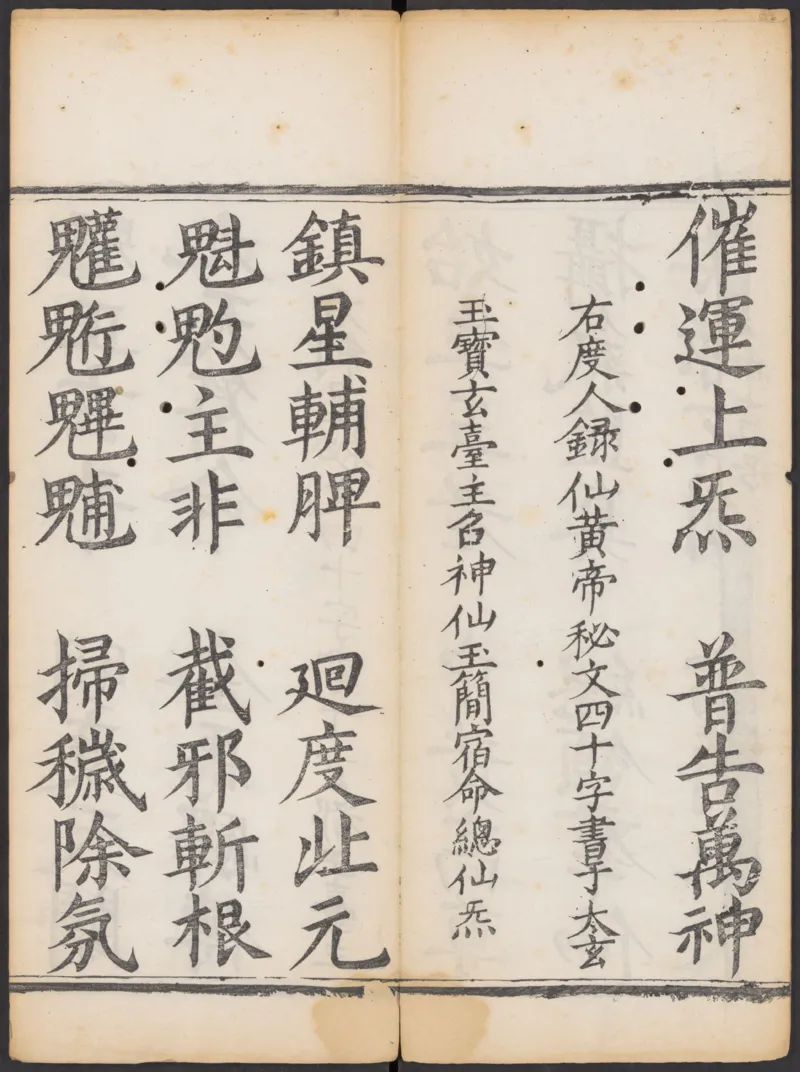 催運上炁　普告萬神
右度人錄仙黄帝秘文四十字書于太玄
玉寶玄臺主召神仙玉簡宿命總仙炁
鎮星輔脾　廻度北元
魁𩲃主非　截邪斬根
𩵄𩲵魓𩳐　掃穢除氛